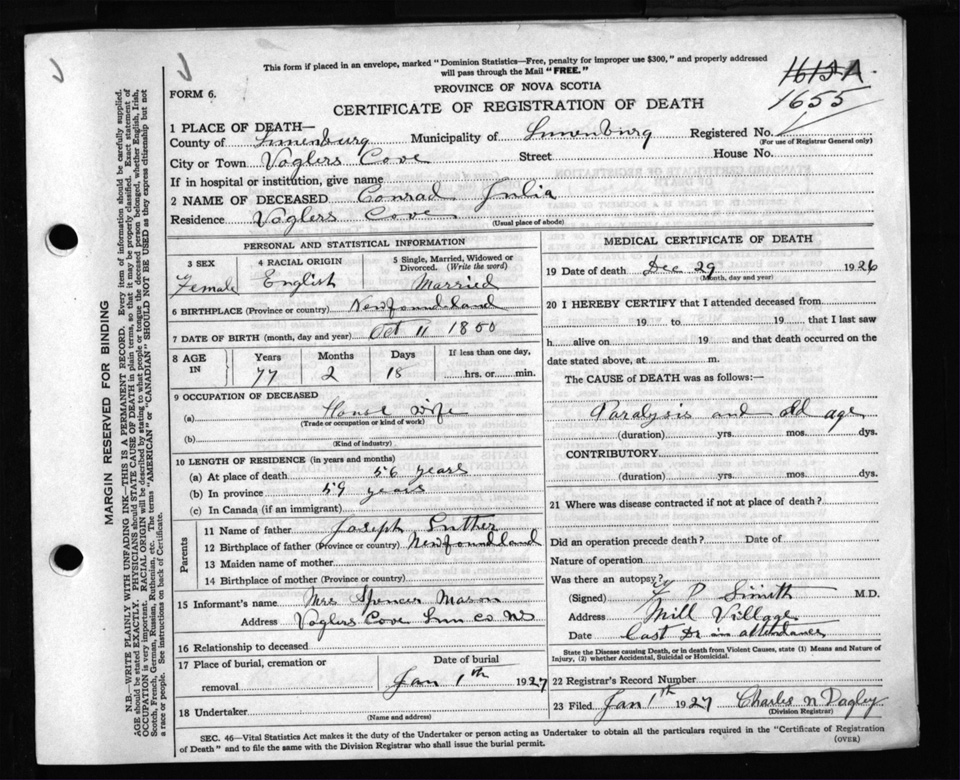 This form if placed in an envelope, marked "Dominion Statistics—Free, penalty for improper use $300," and properly addressed
will pass through the Mail "FREE."
1613A
FORM 6.
PROVINCE OF NOVA SCOTIA
1655
CERTIFICATE OF REGISTRATION OF DEATH
1 PLACE OF DEATH—
County of Lunenburg Municipality of Lunenburg Registered No.
(For use of Registrar General only)
City or Town Voglers Cove Street House No.
If in hospital or institution, give name
2 NAME OF DECEASED Conrad Julia
Residence Voglers Cove
(Usual place of abode)
PERSONAL AND STATISTICAL INFORMATION
3 SEX 4 RACIAL ORIGIN 5 Single, Married, Widowed or
Divorced. (Write the word)
Female English Married
6 BIRTHPLACE (Province or country) Newfoundland
7 DATE OF BIRTH (month, day and year) Oct 11 1800
8 AGE IN Years Months Days If less than one day,
77 2 18 hrs. or min.
9 OCCUPATION OF DECEASED
(a) House wife
(Trade or occupation or kind of work)
(b)
(Kind of industry)
10 LENGTH OF RESIDENCE (in years and months)
(a) At place of death 56 years
(b) In province 59 years
(c) In Canada (if an immigrant)
Parents
11 Name of father Joseph Luther
12 Birthplace of father (Province or country) Newfoundland
13 Maiden name of mother
14 Birthplace of mother (Province or country)
15 Informant's name Mrs Spencer Mason
Address Voglers Cove Lun Co NS
16 Relationship to deceased
17 Place of burial, cremation or removal Date of burial
Jan 1th 1927
18 Undertaker
(Name and address)
MEDICAL CERTIFICATE OF DEATH
19 Date of death Dec 29 1926
(Month, day and year)
20 I HEREBY CERTIFY that I attended deceased from
19 to 19 that I last saw
h alive on 19 and that death occurred on the
date stated above, at m.
The CAUSE of DEATH was as follows:—
Paralysis and old age
(duration) yrs. mos. dys.
CONTRIBUTORY
(duration) yrs. mos. dys.
21 Where was disease contracted if not at place of death?
Did an operation precede death? Date of
Nature of operation
Was there an autopsy?
(Signed) P Smith M.D.
Address Mill Village
Date Last Dr in attendance
State the Disease causing Death, or in death from Violent Causes, state (1) Means and Nature of
Injury, (2) whether Accidental, Suicidal or Homicidal.
22 Registrar's Record Number
23 Filed Jan 1th 1927 Charles N Dagley
(Division Registrar)
SEC. 46—Vital Statistics Act makes it the duty of the Undertaker or person acting as Undertaker to obtain all the particulars required in the "Certificate of Registration
of Death" and to file the same with the Division Registrar who shall issue the burial permit.
(OVER)
MARGIN RESERVED FOR BINDING
N.B.—WRITE PLAINLY WITH UNFADING INK—THIS IS A PERMANENT RECORD. Every item of information should be carefully supplied.
AGE should be stated EXACTLY. PHYSICIANS should STATE CAUSE OF DEATH in plain terms, so that it may be properly classified. Exact statement of
OCCUPATION is very important. RACIAL ORIGIN will be described by stating to what people or tongue the deceased person belonged, whether English, Irish,
Scotch, French, German, Russian, Ruthenian, etc. The terms "AMERICAN" or "CANADIAN" SHOULD NOT BE USED as they express citizenship but not
a race or people. See instructions on back of Certificate.